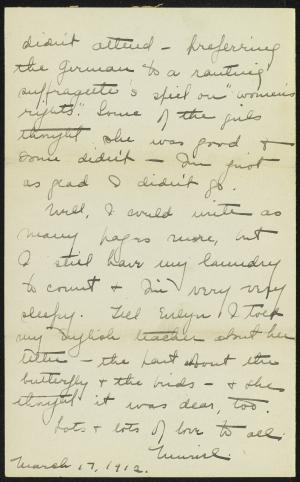 didn't attend – preferring
the German to a ranting
suffragette's spiel on "women's
rights". Some of the girls
thought she was good &
some didn't – I'm just
as glad I didn't go.
Well, I could write as
many pages more, but
I still have my laundry
to count & I'm very very
sleepy. Tell Evelyn I told
my English teacher about her
letter – the part about the
butterfly & the birds – & she
thought it was dear, too.
Lots & lots of love to all.
Muriel.
March 17, 1912.